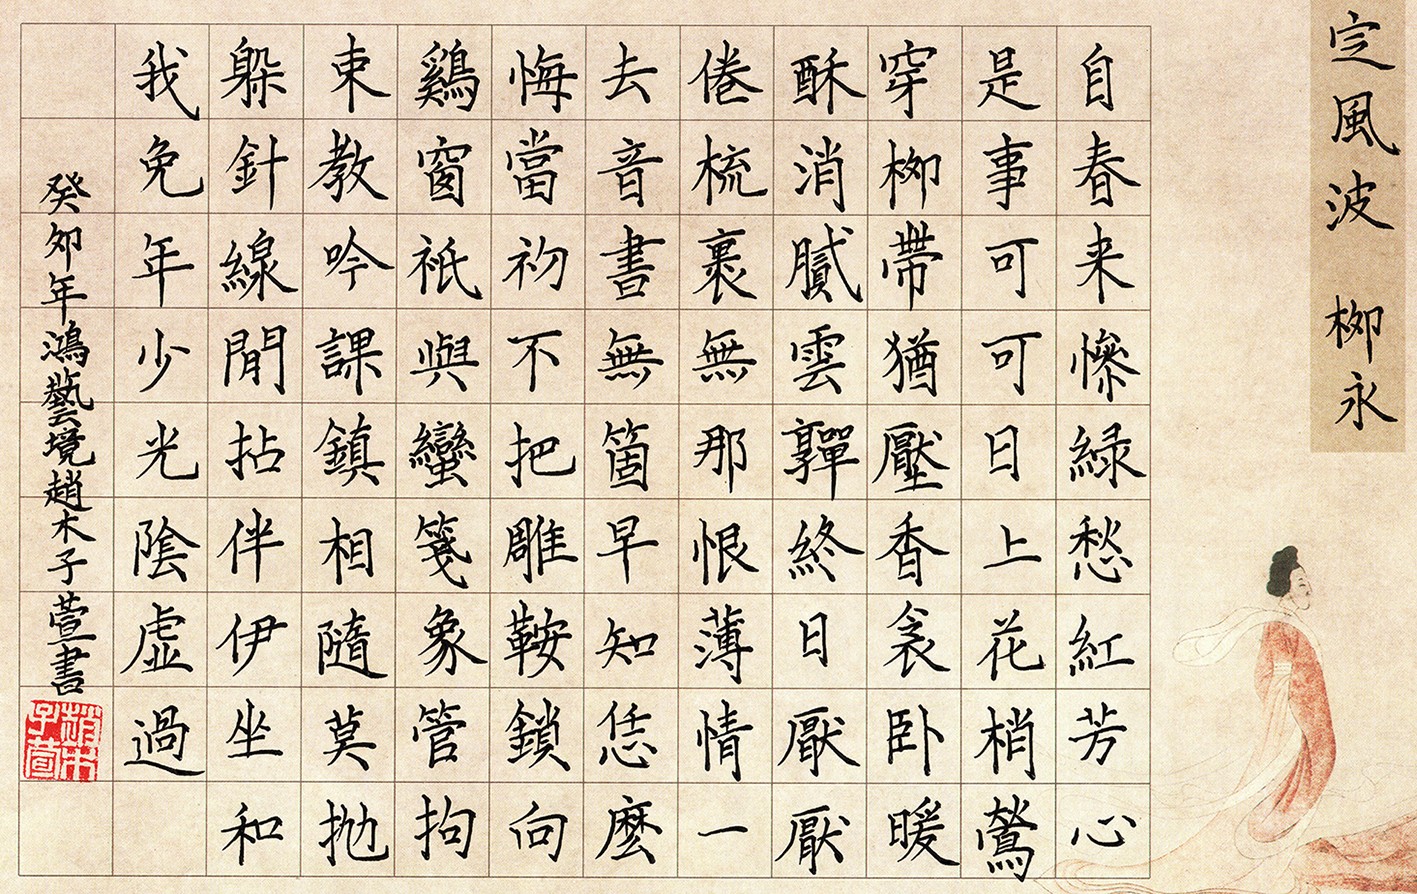 定風波 柳永
自春来慘緑愁紅芳心
是事可可日上花梢鶯
穿柳帶猶壓香衾卧暖
酥消膩雲嚲終日厭厭
倦梳裹無那恨薄情一
去音書無箇早知恁麼
悔當初不把雕鞍鎖向
鷄窗衹與蠻箋象管拘
束教吟課鎮相隨莫抛
躲針線閒拈伴伊坐和
我免年少光陰虛過
癸卯年鴻藝境趙木子萱書
趙木子萱